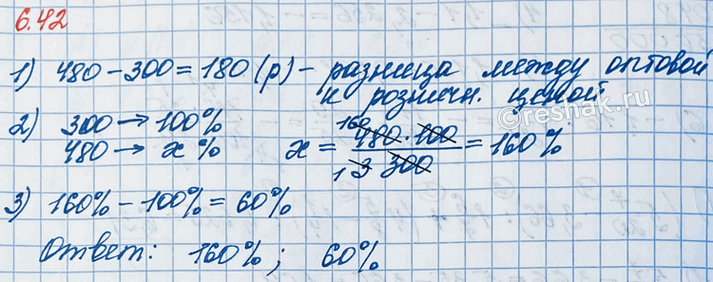 6.42
1) 480 – 300 = 180 (р) – разница между оптовой
и розничн. ценой
2) 300 → 100%
480 → x %    x = 480 · 100 / 300 = 160 %
160
1 3
3) 160% – 100% = 60%
Ответ: 160% ; 60%